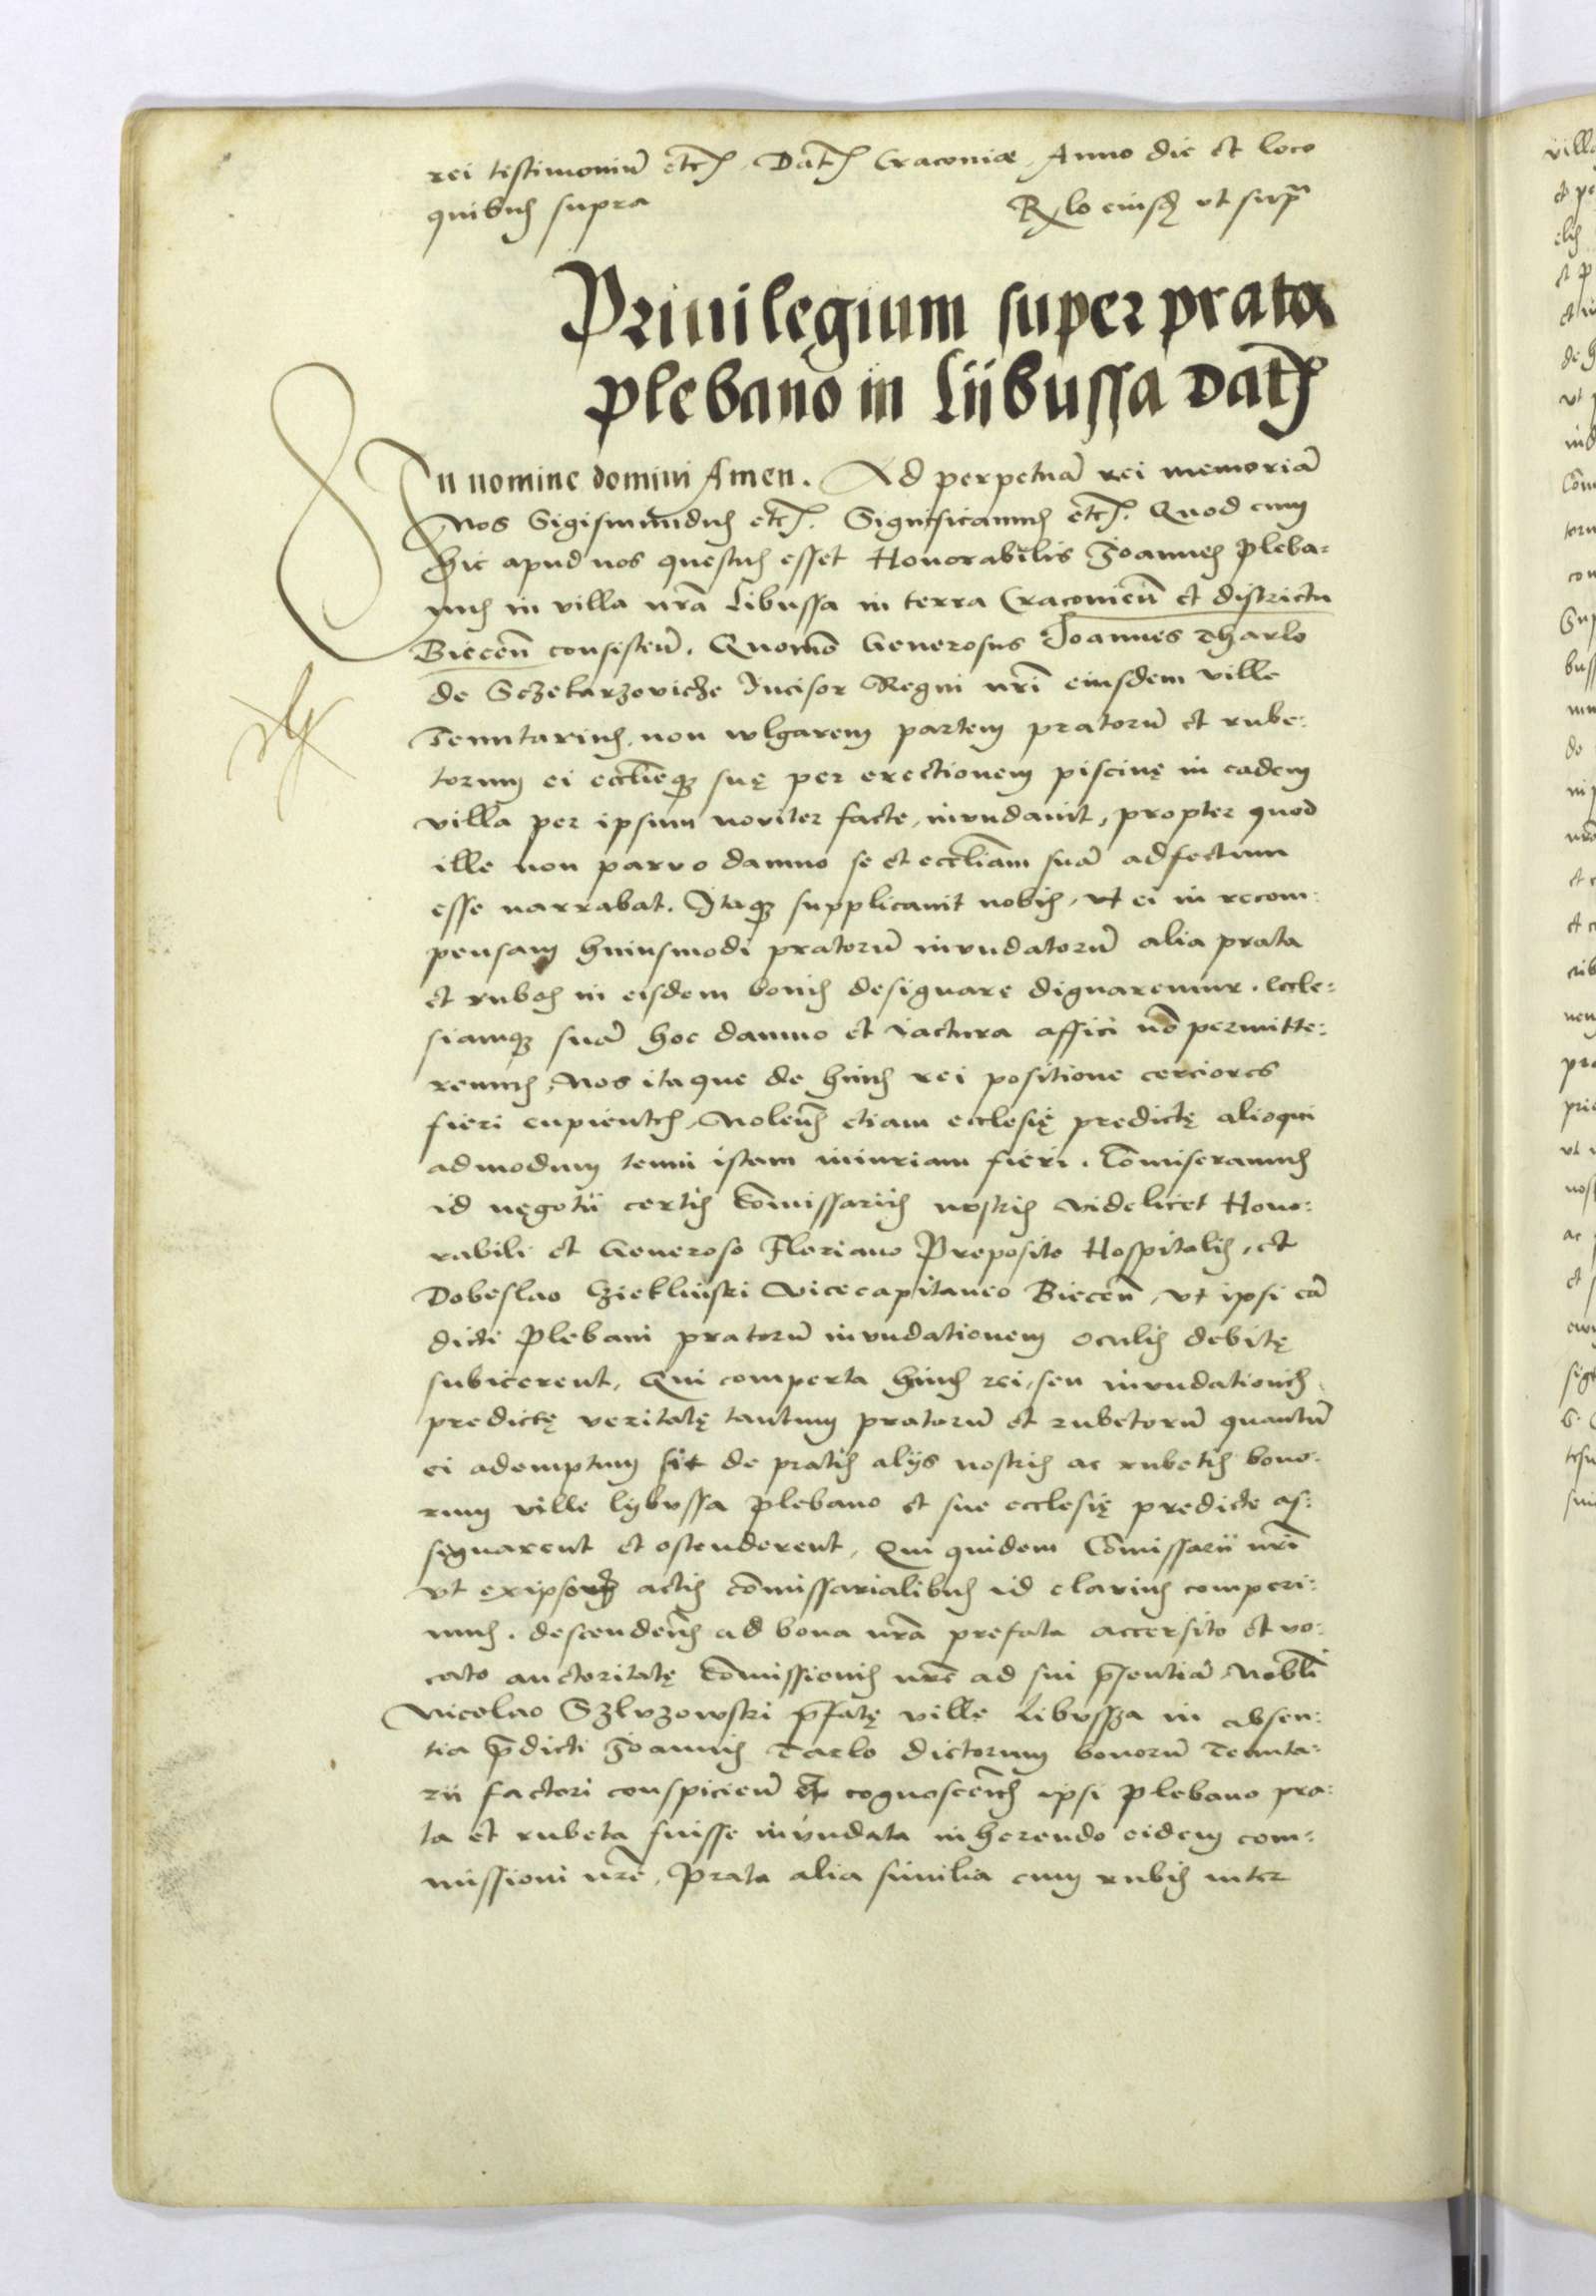 rei testimoniū etc̄. Dat̄ Craconiæ, Anno die et loco
quibus supra R̄lo eiusdꝫ ut sup̄
Priuilegium super prata
plebano in Lijbussa Dat̄
In nomine domini Amen. Ad perpetuā rei memoriā
Nos Sigismundus etc̄. Significamus etc̄. Quod cum
hic apud nos questus esset Honorabilis Joannes Pleba:
nus in villa nr̄a Libussa in terra Cracouien̄ et districtu
Biecen̄ consisten̄. Quomō Generosus Joannes Tharlo
de Sczekarzoviche Incisor Regni nr̄i eiusdem ville
Tenutarius, non wlgarem partem pratorū et rube:
torum ei eccl̄ieqꝫ suę per erectionem piscinę in eadem
villa per ipsum noviter facte, inundauit, propter quod
ille non parvo damno se et eccl̄iam suā adfectum
esse narrabat. Itaqꝫ supplicauit nobis, vt ei in recom:
pensam huiusmodi pratorū inundatorū alia prata
et rubos in eisdem bonis designare dignaremur. Eccle:
siamqꝫ suā hoc damno et iactura affici nō permitte:
remus, Nos itaque de huius rei positione cerciores
fieri cupientes, Nolen̄s etiam ecclesię predictę alioqui
admodum tenui istam iniuriam fieri. Cōmiseramus
id negotii certis Cōmissariis nostris videlicet Hono:
rabili et Generoso Floriano Preposito Hospitalis, et
Dobeslao Czieklinski Vicecapitaneo Biecen̄, vt ipsi eā
dicti Plebani pratorū inundationem oculis debitę
subicerent, Qui comperta huius rei, seu inundationis
predictę veritatę tantum pratorū et rubetorū quantū
ei ademptum sit de pratis alijs nostris ac rubetis bono:
rum ville lybvssa plebano et sue ecclesię predicte as:
signarent et ostenderent, Qui quidem Cōmissarii nr̄i
vt ex ipsorꝫ actis cōmissarialibus id clarius comperi:
mus. descenden̄s ad bona nr̄a prefata accersito et vo:
cato auctoritatę Cōmissionis nr̄e ad sui p̄sentiā Nobl̄i
Nicolao Szlvzowski p̄fatę villę Libvssza in absen:
tia p̄dicti Joannis Tarlo dictorum bonorū Tenuta:
rii factori conspicien̄ et cognoscen̄s ipsi Plebano pra:
ta et rubeta fuisse inundata inherendo eidem com:
missioni nr̄e, Prata alia similia cum rubis inter